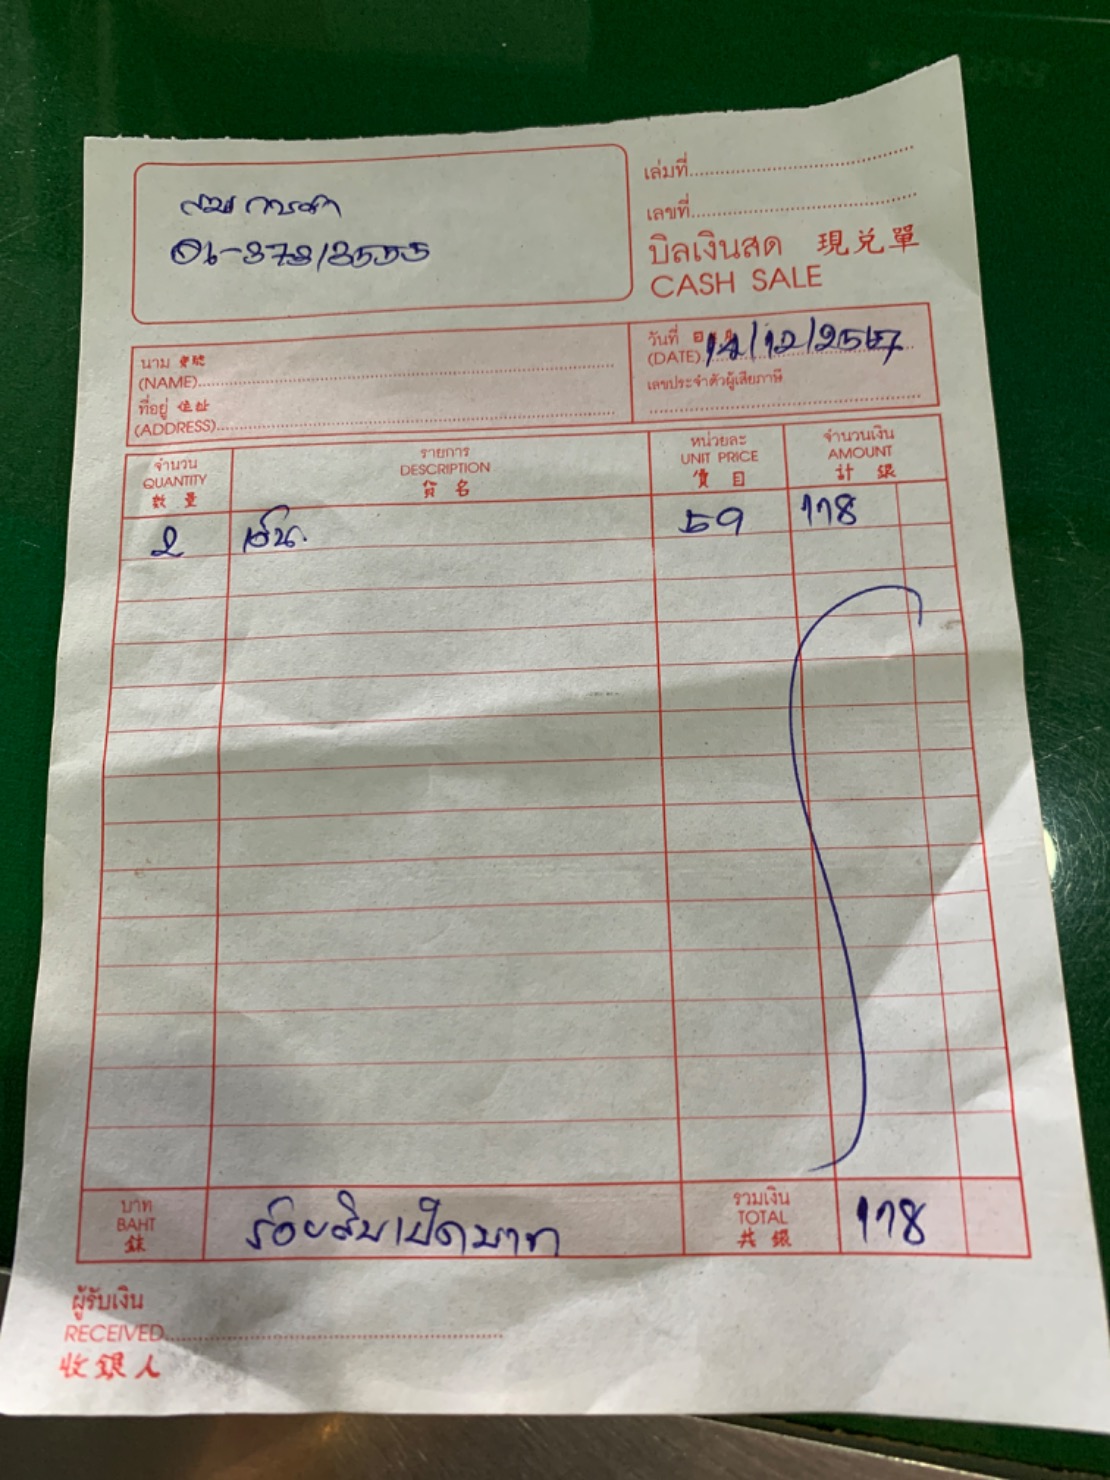 เล่มที่
เลขที่
บิลเงินสด 現兌單
CASH SALE
นาม
(NAME)
ที่อยู่ 住址
(ADDRESS)
วันที่ 14/12/2567
(DATE)
เลขประจำตัวผู้เสียภาษี
จำนวน รายการ หน่วยละ จำนวนเงิน
QUANTITY DESCRIPTION UNIT PRICE AMOUNT
數量 貨名 價目 計銀
2 59 118
บาท รวมเงิน
BAHT ร้อยสิบเปิดบาท TOTAL 118
銖 共銀
ผู้รับเงิน
RECEIVED
收銀人